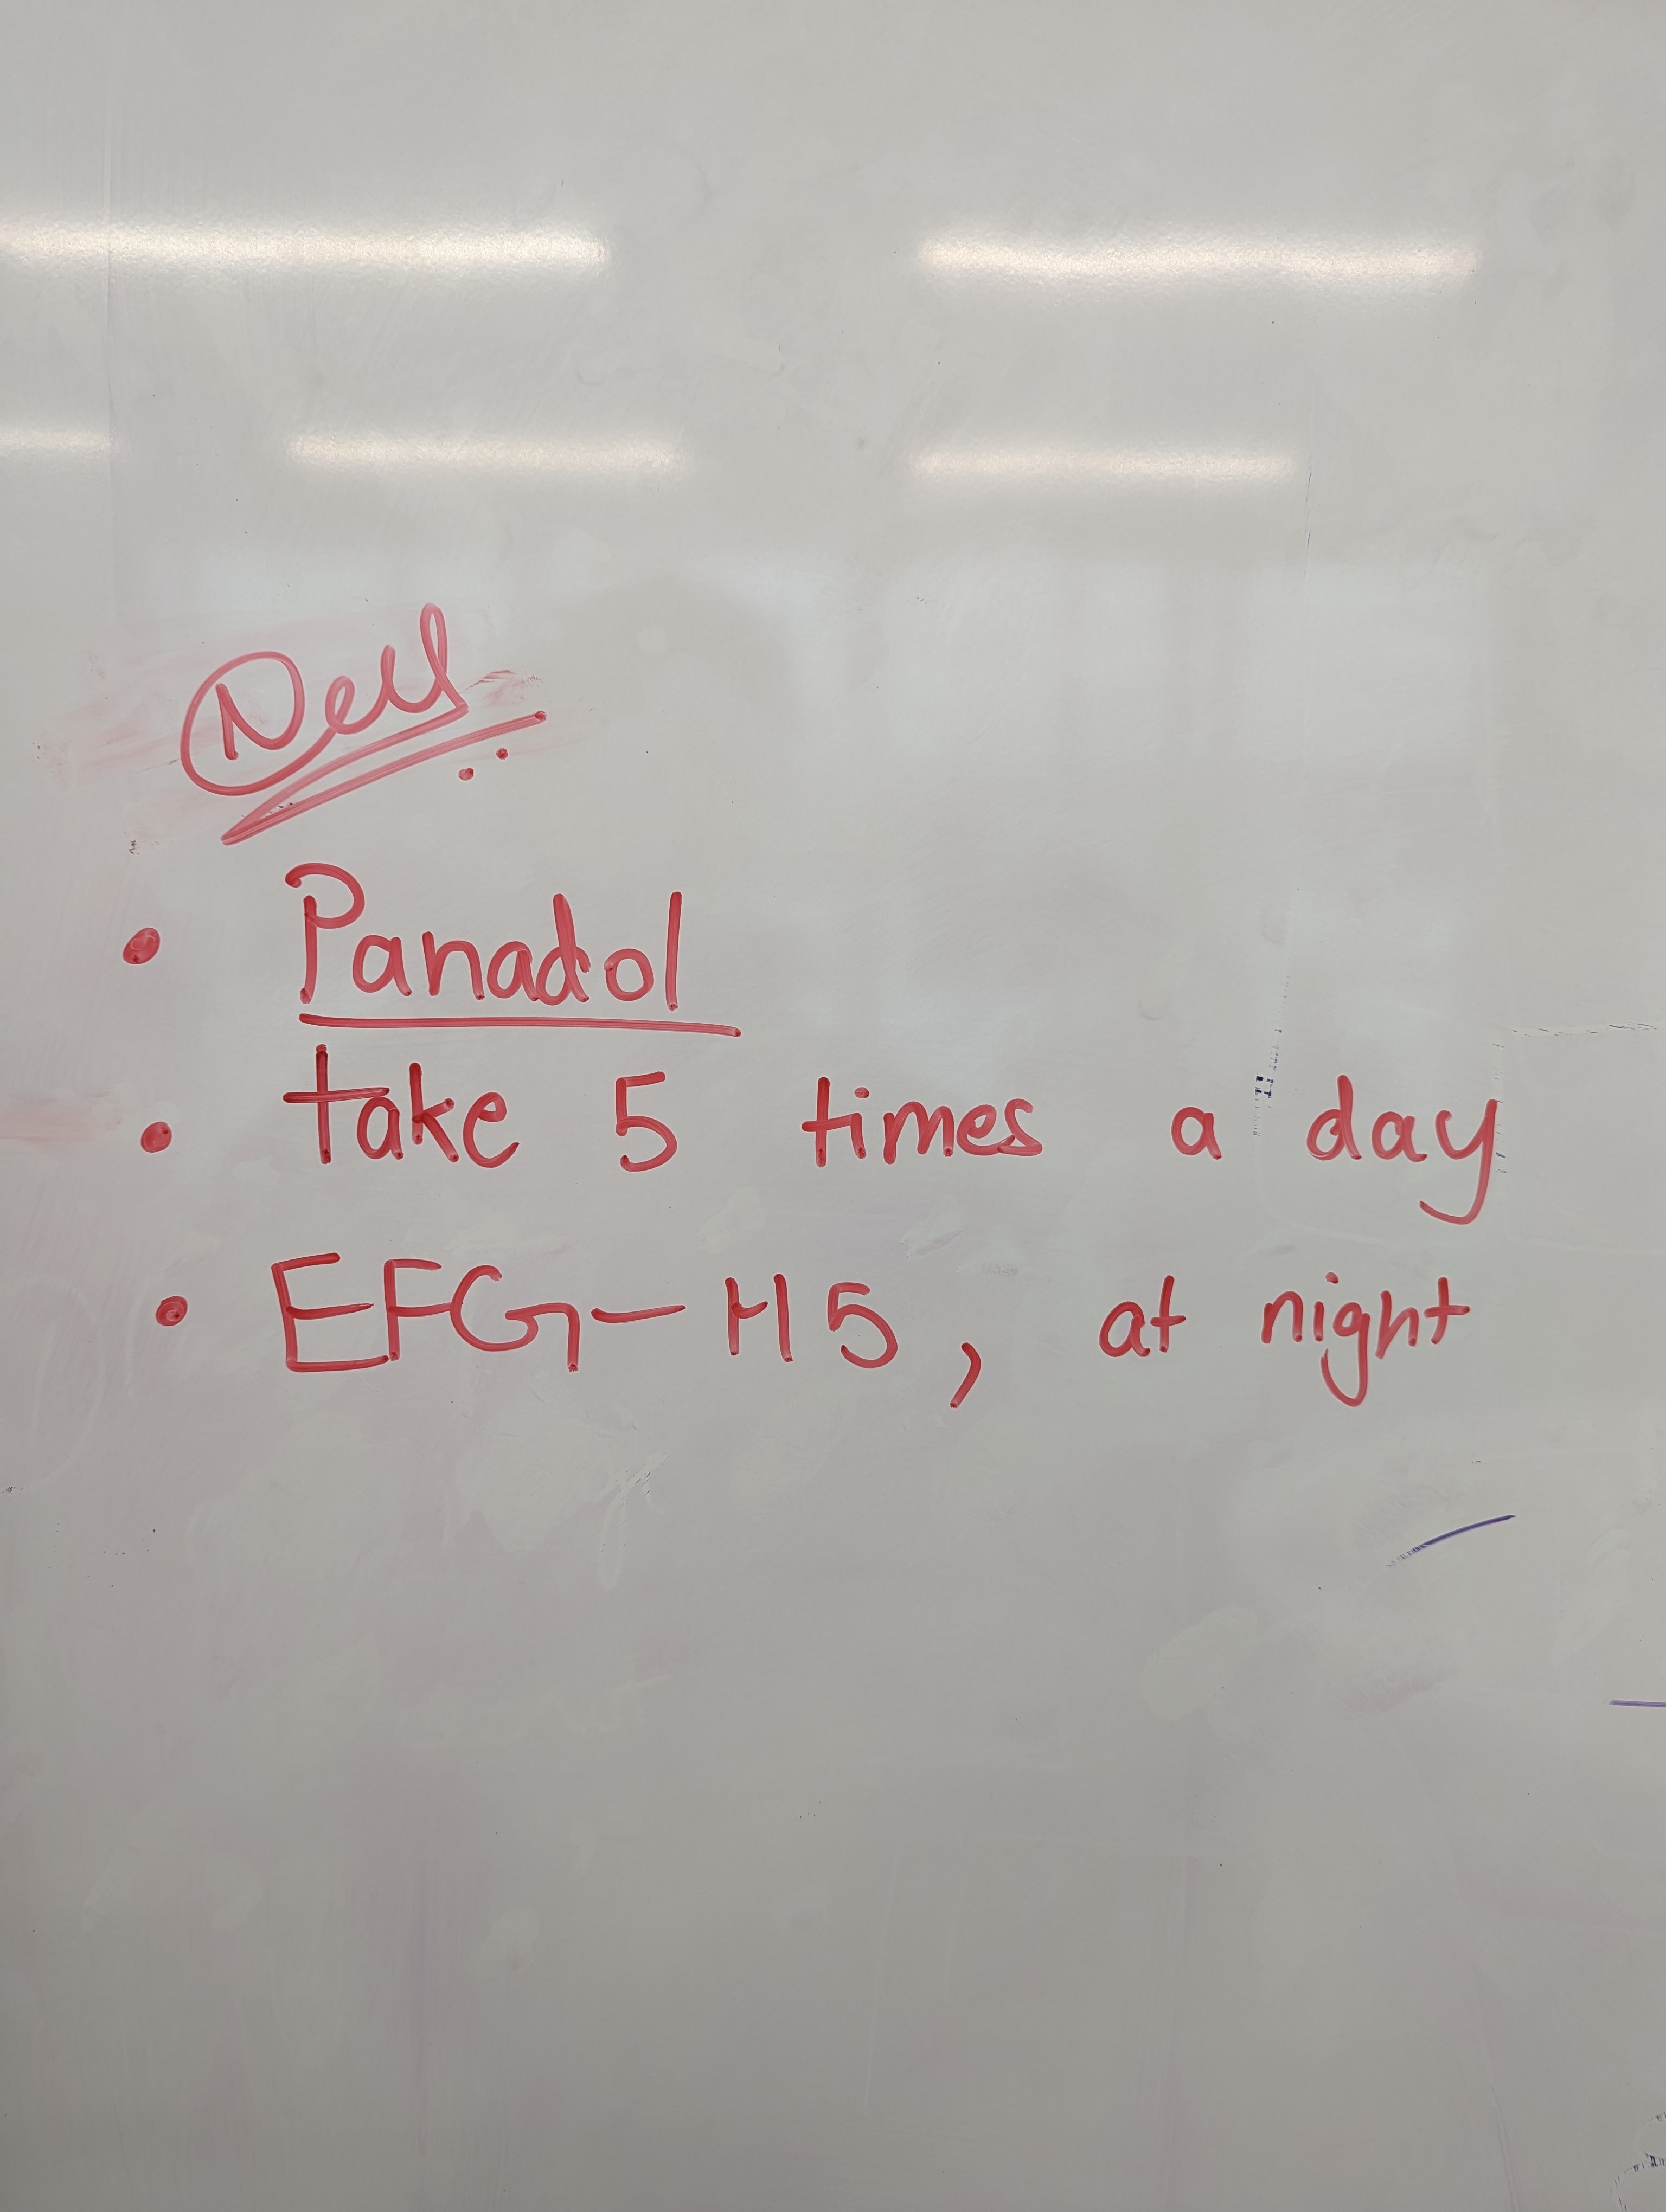 • Panadol
• take 5 times a day
• EFG-H5, at night